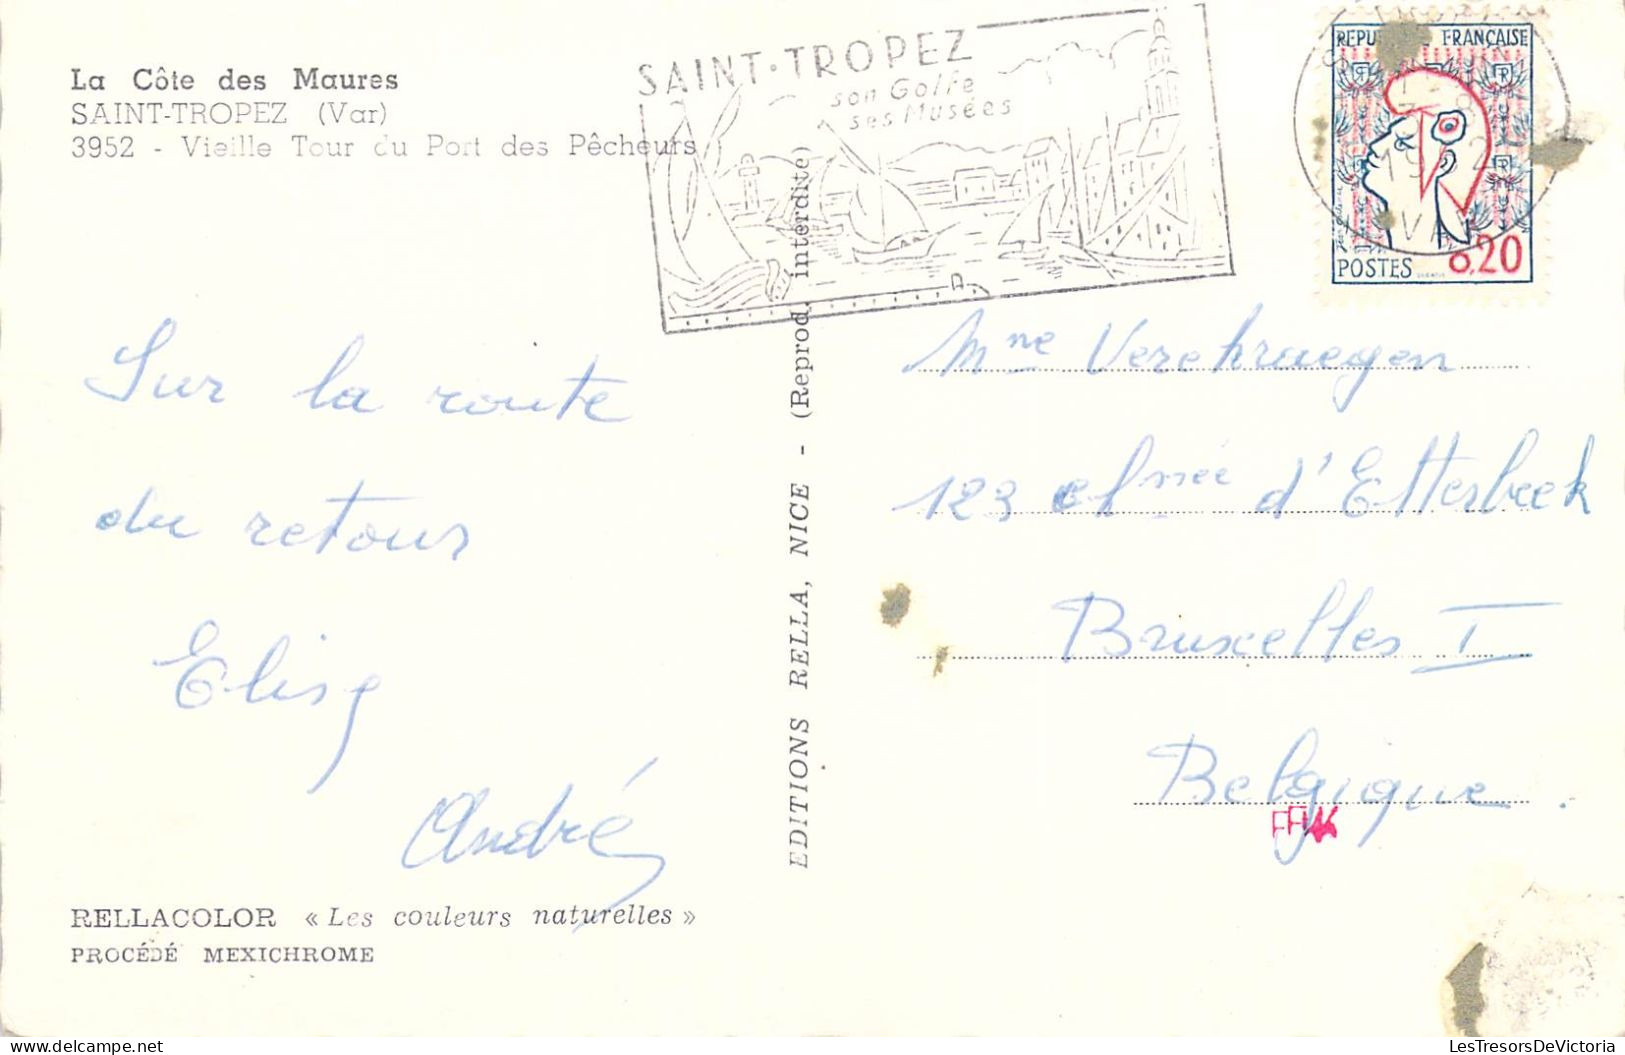 La Côte des Maures
SAINT-TROPEZ (Var)
3952 - Vieille Tour du Port des Pêcheurs
SAINT·TROPEZ
son Golfe
ses Musées
FRANÇAISE
POSTES
0,20
VAR
Sur la route
du retour
Elisa
André
EDITIONS RELLA, NICE - (Reprod. interdite)
Mme Verekruegen
123 chssée d'Etterbeek
Bruxelles I
Belgique.
RELLACOLOR « Les couleurs naturelles »
PROCÉDÉ MEXICHROME
LesTresorsDeVictoria